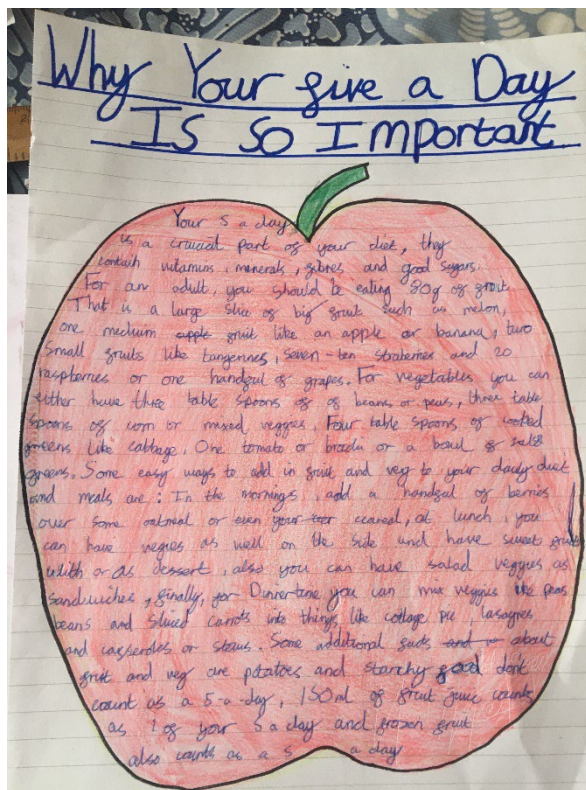 Why Your five a Day
Is So Important
Your 5 a day
is a crucial part of your diet, they
contain vitamins, minerals, fibres and good sugars.
For an adult, you should be eating 80g of fruit.
That is a large slice of big fruit such as melon,
one medium apple fruit like an apple or banana, two
Small fruits like tangerines, seven-ten straberries and 20
raspberries or one handful of grapes. For vegetables you can
either have three table spoons of of beans or peas, three table
spoons of corn or mixed veggies. Four table spoons of cooked
greens like cabbage. One tomato or or a bowl of
greens. Some easy ways to add in fruit and veg to your daily diet
and meals are: In the mornings, add a handful of berries
over some oatmeal or even your ceareal, at lunch, you
can have vegies as well on the side and have sweet fruit
with or as dessert, also you can have salad veggies as
sandwiches, finally, for Dinnertime you can mix veggies like peas
beans and Sliced carrots into things like cottage pie, lasagnes
and casseroles or stews. Some additional about
fruit and veg are potatoes and starchy food don't
count as a 5-a-day, 150ml of fruit juice counts
as 1 of your 5 a day and frozen fruit
also counts as a 5 a day